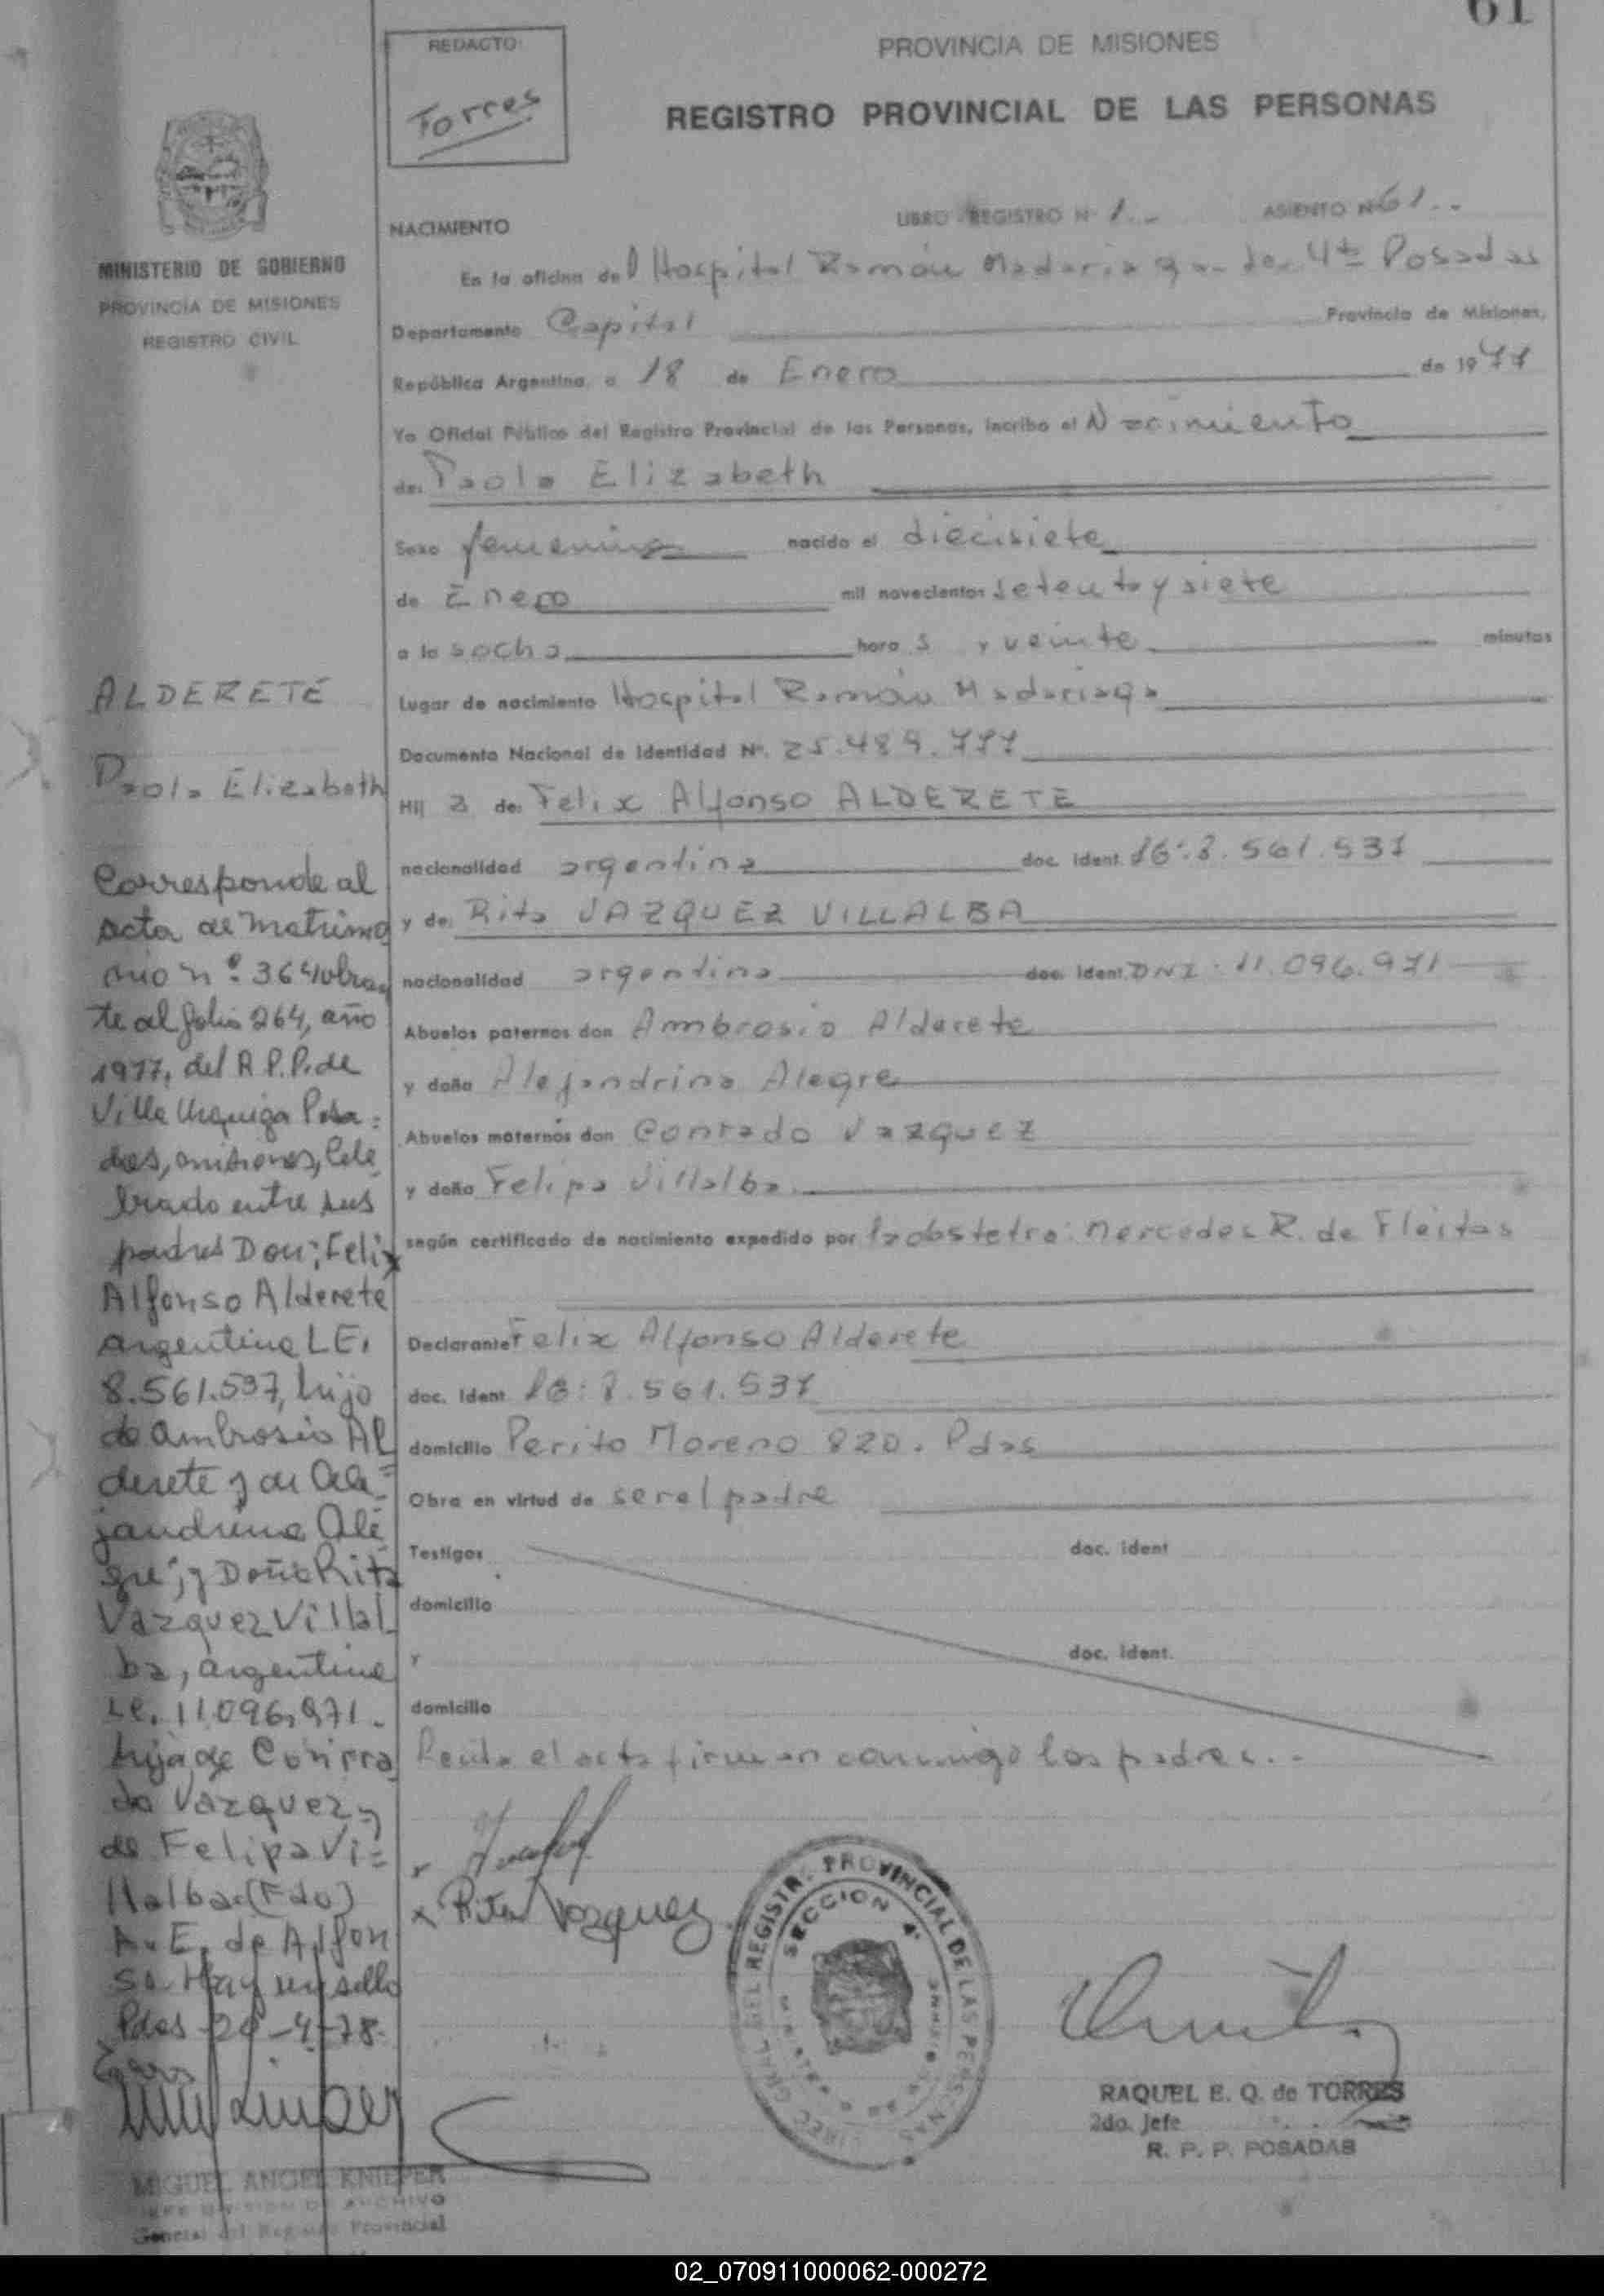 61
REDACTO:
Torres
PROVINCIA DE MISIONES
REGISTRO PROVINCIAL DE LAS PERSONAS
MINISTERIO DE GOBIERNO
PROVINCIA DE MISIONES
REGISTRO CIVIL
NACIMIENTO
LIBRO REGISTRO Nº 1 ASIENTO Nº 61
En la oficina del Hospital Ramón Madariaga Posadas
Departamento Capital Provincia de Misiones,
República Argentina, a 18 de Enero de 1977
Yo Oficial Público del Registro Provincial de las Personas, inscribo el Nacimiento
de: Paola Elizabeth
Sexo femenino nacido el diecisiete
de Enero mil novecientos setenta y siete
a las ocho horas y veinte minutos
Lugar de nacimiento Hospital Ramón Madariaga
Documento Nacional de Identidad Nº. 25.489.777
Hija de: Felix Alfonso ALDERETE
nacionalidad argentina doc. ident. 8.561.537
y de: Rita VAZQUEZ VILLALBA
nacionalidad argentina doc. ident. DNI: 11.096.971
Abuelos paternos don Ambrosio Alderete
y doña Alejandrina Alegre
Abuelos maternos don Conrado Vazquez
y doña Felipa Villalba
según certificado de nacimiento expedido por la obstetra: Mercedes R. de Fleitas
Declarante Felix Alfonso Alderete
doc. ident. 8.561.537
domicilio Perito Moreno 820. Pdas
Obra en virtud de ser el padre
Testigos doc. ident
domicilio
y doc. ident.
domicilio
Leida el acta firman conmigo los padres.
Rita Vazquez
ALDERETE
Paola Elizabeth
Corresponde al
acta de Matrimo
nio nº 364 obran
te al folio 264, año
1977, del R.P.P. de
Villa Urquiza Posa=
das, misiones, Cele
brado entre sus
padres Don; Felix
Alfonso Alderete
argentino LE.
8.561.537, hijo
de Ambrosio Al
derete y de Ale=
jandrina Ale
gre; y Doña Rita
Vazquez Villal
ba, argentina
LE. 11.096.971.
hija de Conrra
do Vazquez y
de Felipa Vi=
llalba (Fdo)
A. E. de Alfon
so. Hay un sello
Pdas 4-78.
MIGUEL ANGEL KNIEPER
JEFE DIVISION DE ARCHIVO
General del Registro Provincial
DIREC. GRAL. DEL REGISTR. PROVINCIAL DE LAS PERSONAS
SECCION 4ª
RAQUEL E. Q. de TORRES
2do. Jefe
R. P. P. POSADAS
02_070911000062-000272